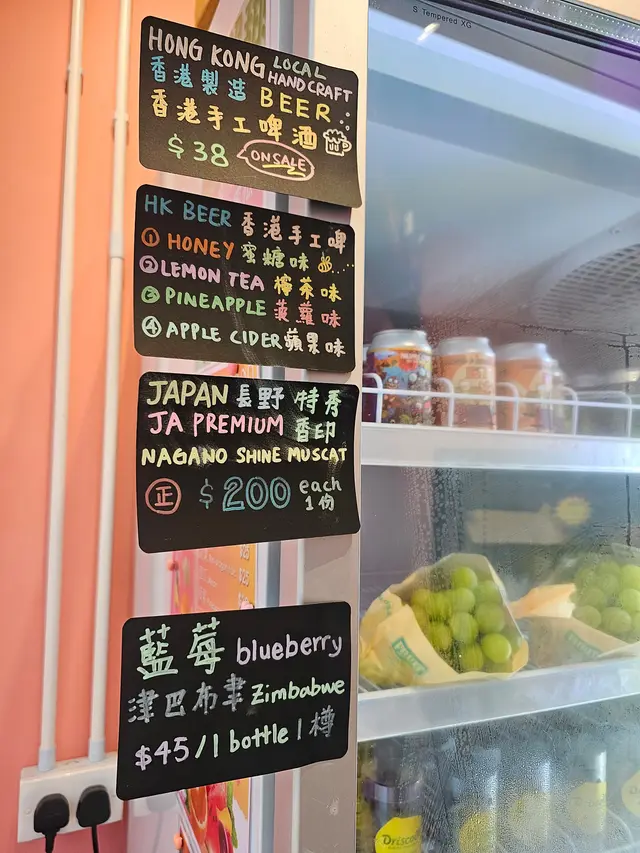 S Tempered XG
HONG KONG LOCAL
香港製造 HANDCRAFT
BEER
香港手工啤酒
$38 ON SALE
HK BEER 香港手工啤
① HONEY 蜜糖味
② LEMON TEA 檸茶味
③ PINEAPPLE 菠蘿味
④ APPLE CIDER 蘋果味
JAPAN 長野 特秀
JA PREMIUM 香印
NAGANO SHINE MUSCAT
正 $200 each
1份
藍莓 blueberry
津巴布韋 Zimbabwe
$45/1 bottle 1樽
$25
$25